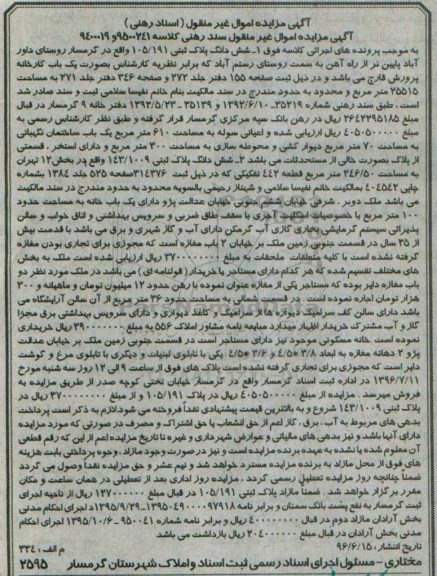 آگهی مزایده اموال غیر منقول ( اسناد رهنی )
آگهی مزایده اموال غیر منقول سند رهنی کلاسه ۹۵۰۰۲۴۱و۹۴۰۰۰۱۹
به موجب پرونده های اجرائی کلاسه فوق ۱ـ شش دانگ پلاک ثبتی ۱۰۵/۱۹۱ واقع در گرمسار روستای داور
آباد پایین تر از راه آهن به سمت روستای رستم آباد که برابر نظریه کارشناس بصورت یک باب کارخانه
پرورش قارچ می باشد و در ذیل ثبت صفحه ۱۵۵ دفتر جلد ۲۷۲ و صفحه ۳۴۶ دفتر جلد ۲۷۱ به مساحت
۲۵۵۱۵ متر مربع و محدود به حدود مندرج در سند مالکیت بنام خانم نفیسا سلامی ثبت و سند صادر شد
است . طبق سند رهنی شماره ۳۵۲۱۹ـ ۱۳۹۲/۶/۱۰ و ۳۵۱۳۹ ـ ۱۳۹۲/۵/۲۳ دفتر خانه ۹ گرمسار در قبال
مبلغ ۲۶۴۲۲۹۵۱۸۵ ریال در رهن بانک سپه مرکزی گرمسار قرار گرفته و طبق نظر کارشناس رسمی به
مبلغ ۴۰۵۰۵۰۰۰۰۰ ریال ارزیابی شده و اعیانی سوله به مساحت ۶۱۰ متر مربع یک باب ساختمان نگهبانی
به مساحت ۷۰ متر مربع دیوار کشی و محوطه سازی به مساحت ۳۰۰ متر مربع و دارای استخر . قسمتی
از پلاک بصورت خالی از مستحدثات می باشد ۲ـ شش دانگ پلاک ثبتی ۱۴۳/۱۰۰۹ واقع در بخش ۱۲ تهران
به مساحت ۲۴۶/۵۰ متر مربع قطعه ۴۴۲ تفکیکی که در ذیل ثبت ۳۱۴۳۷۶ صفحه ۵۲۵ جلد ۱۳۸۴ بشماره
چاپی ۴۰۴۵۴۲ بمالکیت خانم نفیسا سلامی و شهناز رحیمی بالسویه محدود به حدود مندرج در سند مالکیت
می باشد ملک دوبر . شرقی خیابان ششم جنوبی خیابان عدالت پژو دارای یک باب خانه به مساحت حدود
۱۰۰ متر مربع با خصوصیات آجری با سقف طاق ضربی و سرویس بهداشتی و اتاق خواب و سالن
پذیرائی سیستم گرمایشی بخاری گازی آب گرمکن دارای آب و گاز شهری و برق می باشد با قدمت بیش
از ۳۵ سال در قسمت جنوبی زمین ملک بر خیابان ۲ باب مغازه است که مجوزی برای تجاری بودن مغازه
گرفته نشده است با کلیه متعلقات ملحقات به مبلغ ۳۷۰۰۰۰۰۰۰۰۰ ریال ارزیابی شده است ملک به بخش
های مختلف تقسیم شده که هر کدام دارای مستاجر یا خریدار ( قولنامه ای ) می باشد در ملک مورد نظر دو
باب مغازه دایر بوده که مستاجر یکی از مغازه عنوان نموده با رهن حدود ۱۲ میلیون تومان و ماهیانه ۳۰۰
هزار تومان اجاره نموده است . در قسمت شمالی به مساحت حدود ۳۶ متر مربع از آن سالن آرایشگاه می
باشد دارای سالن کف سرامیک دیواره ها سرامیک و کاغذ دیواری و دارای سرویس بهداشتی برق مجزا
گاز و آب مشترک خریدار اظهار میدارد مبایعه نامه مشاور املاک ۵۵۶ به مبلغ ۳۹۰۰۰۰۰۰۰۰ ریال خریداری
نموده است . خانه مسکونی موجود نیز دارای مستاجر است در قسمت جنوبی زمین ملک بر خیابان عدالت
پژو ۲ دهانه مغازه به ابعاد ۳/۸ *۴/۵ و ۳/۶ *۴/۵ یکی با تابلوی لبنیات و دیگری با تابلوی مرغ و گوشت
دایر است که مجوزی برای تجاری گرفته نشده است پلاک های فوق از ساعت ۹ الی ۱۲ روز سه شنبه مورخ
۱۳۹۶/۷/۱۱ در اداره ثبت اسناد گرمسار واقع در گرمسار خیابان تختی کوچه صدر از طریق مزایده به
فروش میرسد . مزایده از مبلغ ۴۰۵۰۵۰۰۰۰۰ ریال در پلاک ۱۰۵/۱۹۱ و از مبلغ ۳۷۰۰۰۰۰۰۰۰۰ ریال در
پلاک ثبتی ۱۴۳/۱۰۰۹ شروع و به بالاترین قیمت پیشنهادی نقداً فروخته می شود.لازم به ذکر است پرداخت
بدهی های مربوط به آب ، برق ، گاز اعم از حق انشعاب یا حق اشتراک و مصرف در صورتی که مورد مزایده
دارای آنها باشد و نیز بدهی های مالیاتی و عوارض شهرداری و غیره تا تاریخ مزایده اعم از این که رقم قطعی
آن معلوم شده یا نشده به عهده برنده مزایده است و نیز در صورت وجود مازاد ، وجوه پرداختی بابت هزینه
های فوق از محل مازاد به برنده مزایده مسترد خواهد شد و نیم عشر و حق مزایده نقداً وصول می گردد
ضمناً چنانچه روز مزایده تعطیل رسمی گردد ، مزایده روز اداری بعد از تعطیلی در همان ساعت و مکان
مقرر برگزار خواهد شد . ضمناً مازاد پلاک ثبتی ۱۰۵/۱۹۱ در قبال مبلغ ۱۲۷۰۰۰۰۰۰ ریال از ناحیه اجرای
ثبت گرمسار به نفع پست بانک سمنان و برابر نامه ۱۳۹۵۰۴۹۰۰۰۰۹۷۹۱۸ـ۱۳۹۵/۹/۲۹ اجرای احکام مدنی
بخش آرادان مازاد دوم در قبال ۴۰۰۰۰۰۰۰۰ ریال و برابر نامه شماره ۹۵۰۰۴۱ ـ ۱۳۹۵/۱۰/۶ اجرای احکام
مدنی بخش آرادان در قبال مبلغ ۲۰۴۰۰۰۰۰۰ ریال بازداشت می باشد
تاریخ انتشار: ۹۶/۶/۱۵ م الف : ۳۳۴
مختاری - مسئول اجرای اسناد رسمی ثبت اسناد و املاک شهرستان گرمسار ۲۵۹۵